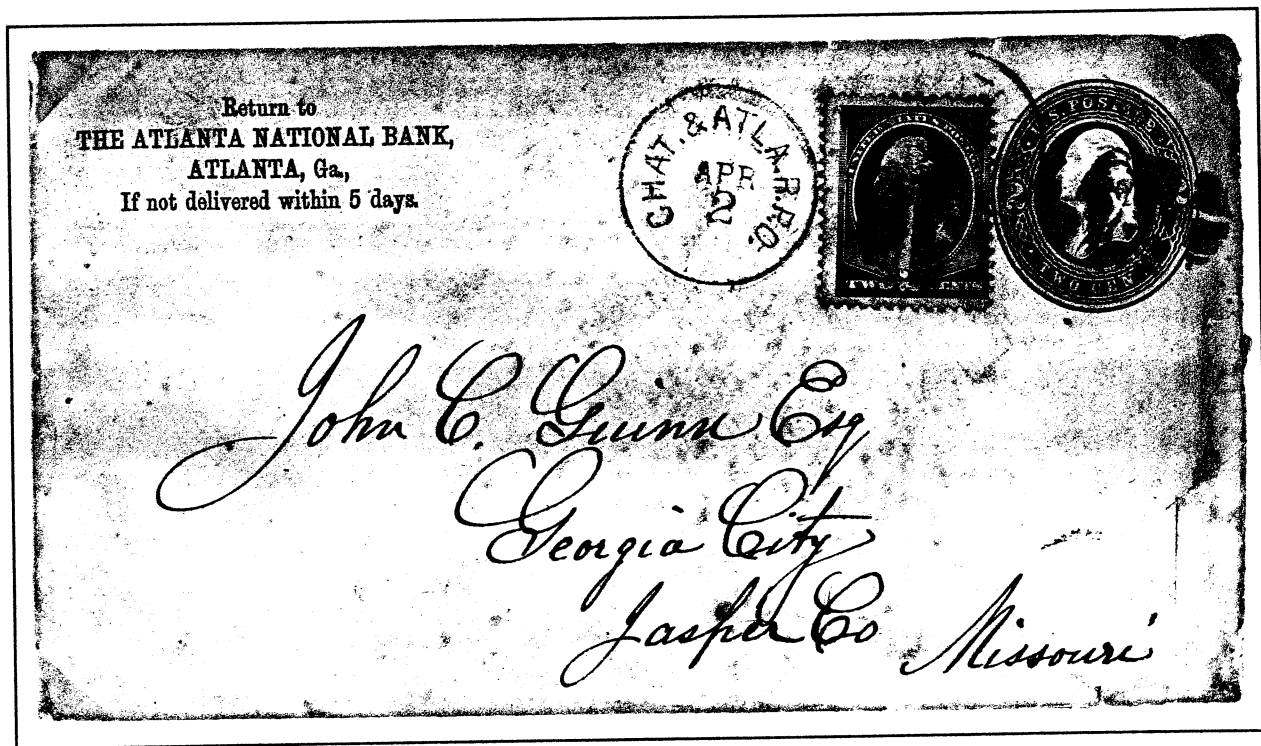 Return to
THE ATLANTA NATIONAL BANK,
ATLANTA, Ga.,
If not delivered within 5 days.
CHAT. & ATLA. R.P.O.
APR
2
TWO CENTS
U.S. POSTAGE
TWO CENTS
John C. Guinn Esq
Georgia City
Jasper Co Missouri